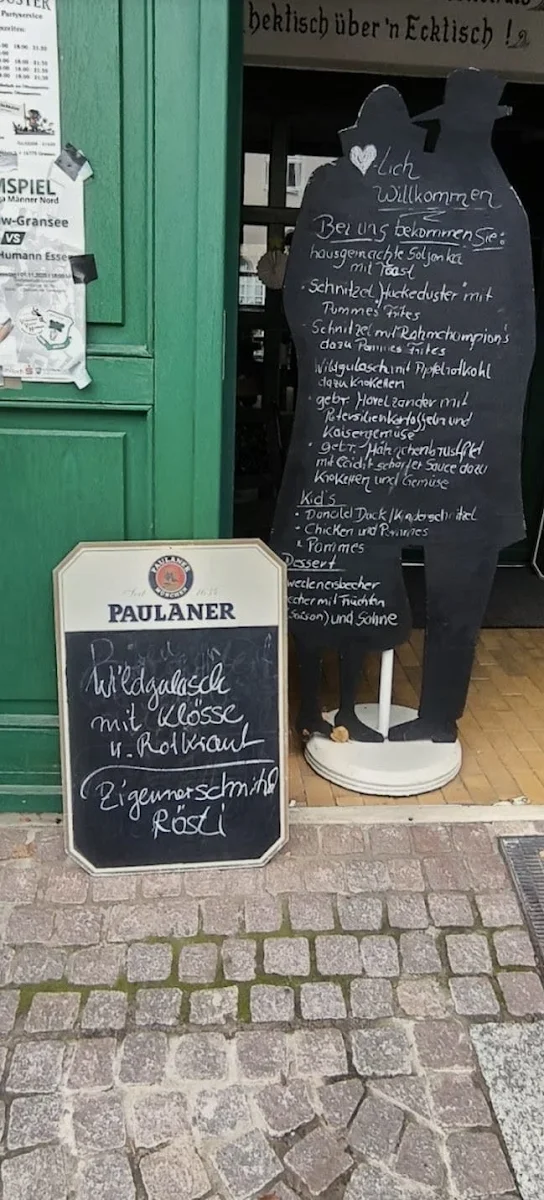 hektisch über'n Ecktisch !
USTER
Partyservice
MSPIEL
ga Männer Nord
w-Gransee
VS
Humann Essen
lich
Willkommen
Bei uns bekommen Sie:
hausgemachte Soljanka
mit Toast
· Schnitzel "Huckeduster" mit
Pommes Frites
· Schnitzel mit Rahmchampion's
dazu Pommes Frites
Wildgulasch mit Apfelrotkohl
dazu Kroketten
· gebr. Havelzander mit
Petersilienkartoffeln und
Kaisergemüse
· gebr. Hähnchenbrustfilet
mit leicht scharfer Sauce dazu
Kroketten und Gemüse
Kid's
· Donald Duck / Kinderschnitzel
· Chicken und Pommes
· Pommes
Dessert
wedeneisbecher
echer mit Früchten
(Saison) und Sahne
PAULANER
MÜNCHEN
PAULANER
Wildgulasch
mit Klösse
u. Rotkraut
Zigeunerschnitzel
Rösti